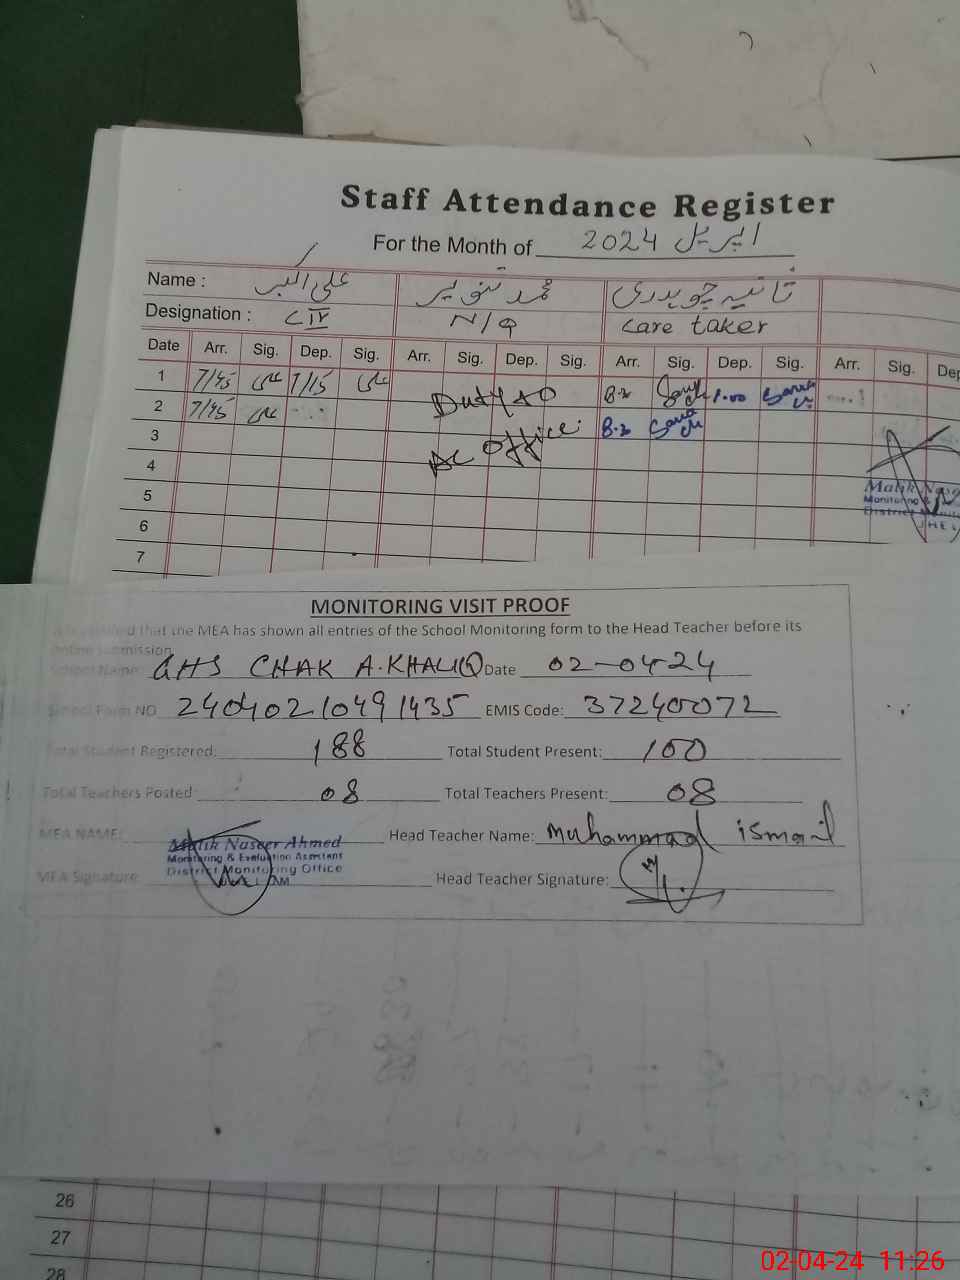 Staff Attendance Register
For the Month of اپریل 2024
Name : علی اکبر محمد تنویر ثانیہ چوہدری
Designation : C IV N/Q care taker
Date Arr. Sig. Dep. Sig. Arr. Sig. Dep. Sig. Arr. Sig. Dep. Sig. Arr. Sig. Dep
1 7/45 علی 1/15 علی Duty to 8.30 1.00
2 7/45 علی
3 AC office.
4
5
6
7
Malik Nase
Monitoring &
District Monito
JHE
MONITORING VISIT PROOF
that the MEA has shown all entries of the School Monitoring form to the Head Teacher before its
online submission
School Name: GHS CHAK A.KHALIQ Date 02-04-24
School Form NO 24040210491435 EMIS Code: 37240072
Total Student Registered: 188 Total Student Present: 100
Total Teachers Posted: 08 Total Teachers Present: 08
MEA NAME: Malik Naseer Ahmed Head Teacher Name: Muhammad ismail
Monitoring & Evaluation Assistant
District Monitoring Office
MEA Signature Head Teacher Signature:
26
27
28
02-04-24 11:26